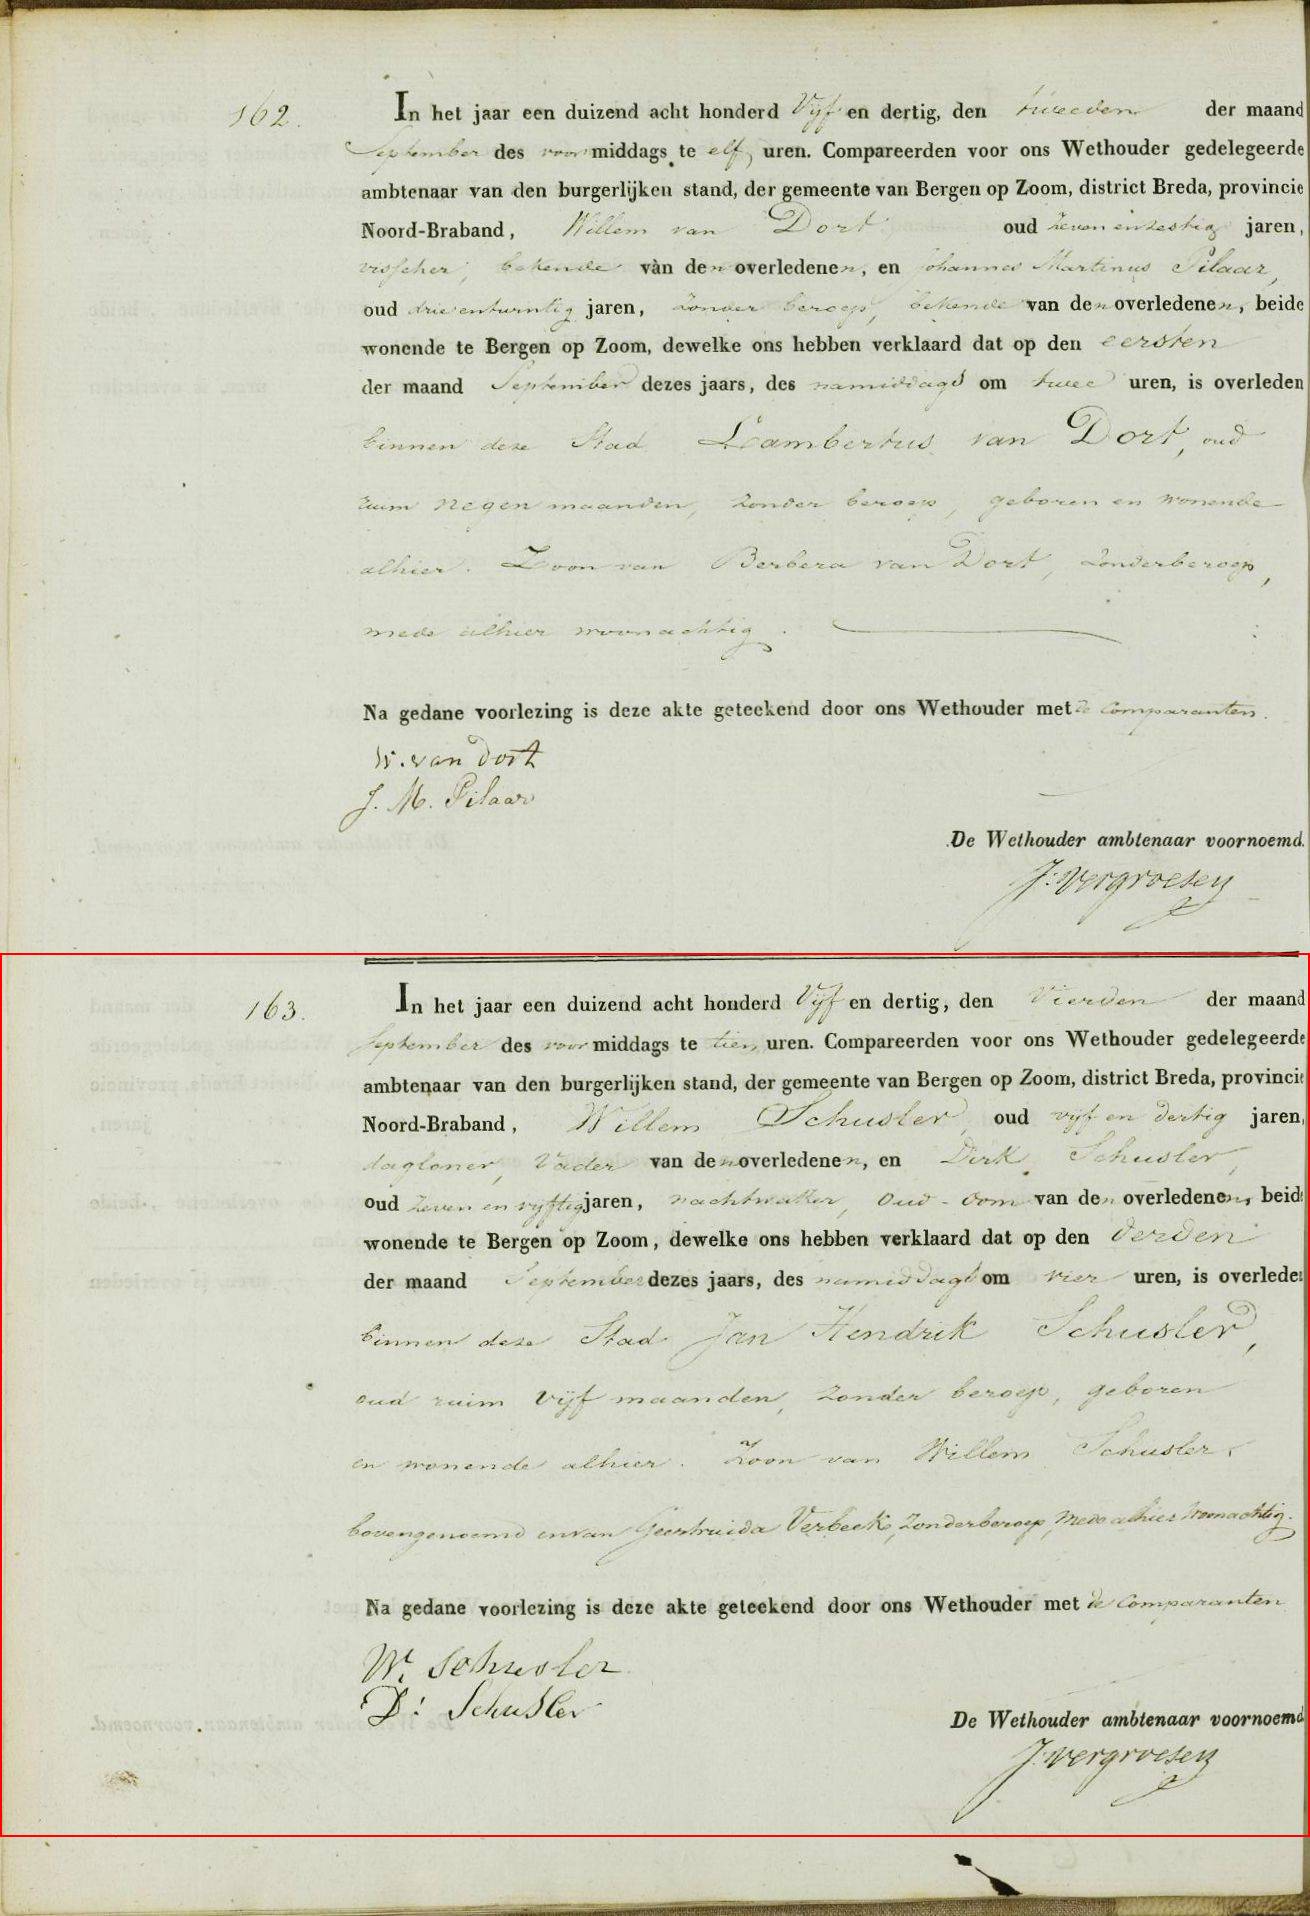 162.
In het jaar een duizend acht honderd Vijf en dertig, den tweeden der maand
September des voormiddags te elf uren. Compareerden voor ons Wethouder gedelegeerde
ambtenaar van den burgerlijken stand, der gemeente van Bergen op Zoom, district Breda, provincie
Noord-Braband, Willem van Dort oud zeven en zestig jaren,
visscher, bekende van den overledenen, en Johannes Martinus Pilaar,
oud drie en twintig jaren, zonder beroep, bekende van den overledenen, beide
wonende te Bergen op Zoom, dewelke ons hebben verklaard dat op den eersten
der maand September dezes jaars, des namiddags om twee uren, is overleden
binnen deze Stad Lambertus van Dort, oud
ruim negen maanden, zonder beroep, geboren en wonende
alhier. Zoon van Berbera van Dort, zonder beroep,
mede alhier woonachtig.
Na gedane voorlezing is deze akte geteekend door ons Wethouder met de Comparanten.
W. van Dort
J. M. Pilaar
De Wethouder ambtenaar voornoemd.
J. Vergroesen
163.
In het jaar een duizend acht honderd Vijf en dertig, den Vierden der maand
September des voormiddags te tien uren. Compareerden voor ons Wethouder gedelegeerde
ambtenaar van den burgerlijken stand, der gemeente van Bergen op Zoom, district Breda, provincie
Noord-Braband, Willem Schusler, oud vijf en dertig jaren,
dagloner, Vader van den overledenen, en Dirk Schusler,
oud zeven en vijftig jaren, nachtwaker, oud-oom van den overledenen, beide
wonende te Bergen op Zoom, dewelke ons hebben verklaard dat op den derden
der maand September dezes jaars, des namiddags om vier uren, is overleden
binnen deze Stad Jan Hendrik Schusler,
oud ruim vijf maanden, zonder beroep, geboren
en wonende alhier. Zoon van Willem Schusler,
bovengenoemd en van Geertruida Verbeek, zonder beroep, mede alhier woonachtig.
Na gedane voorlezing is deze akte geteekend door ons Wethouder met de Comparanten
W. Schusler
D: Schusler
De Wethouder ambtenaar voornoemd
J. Vergroesen